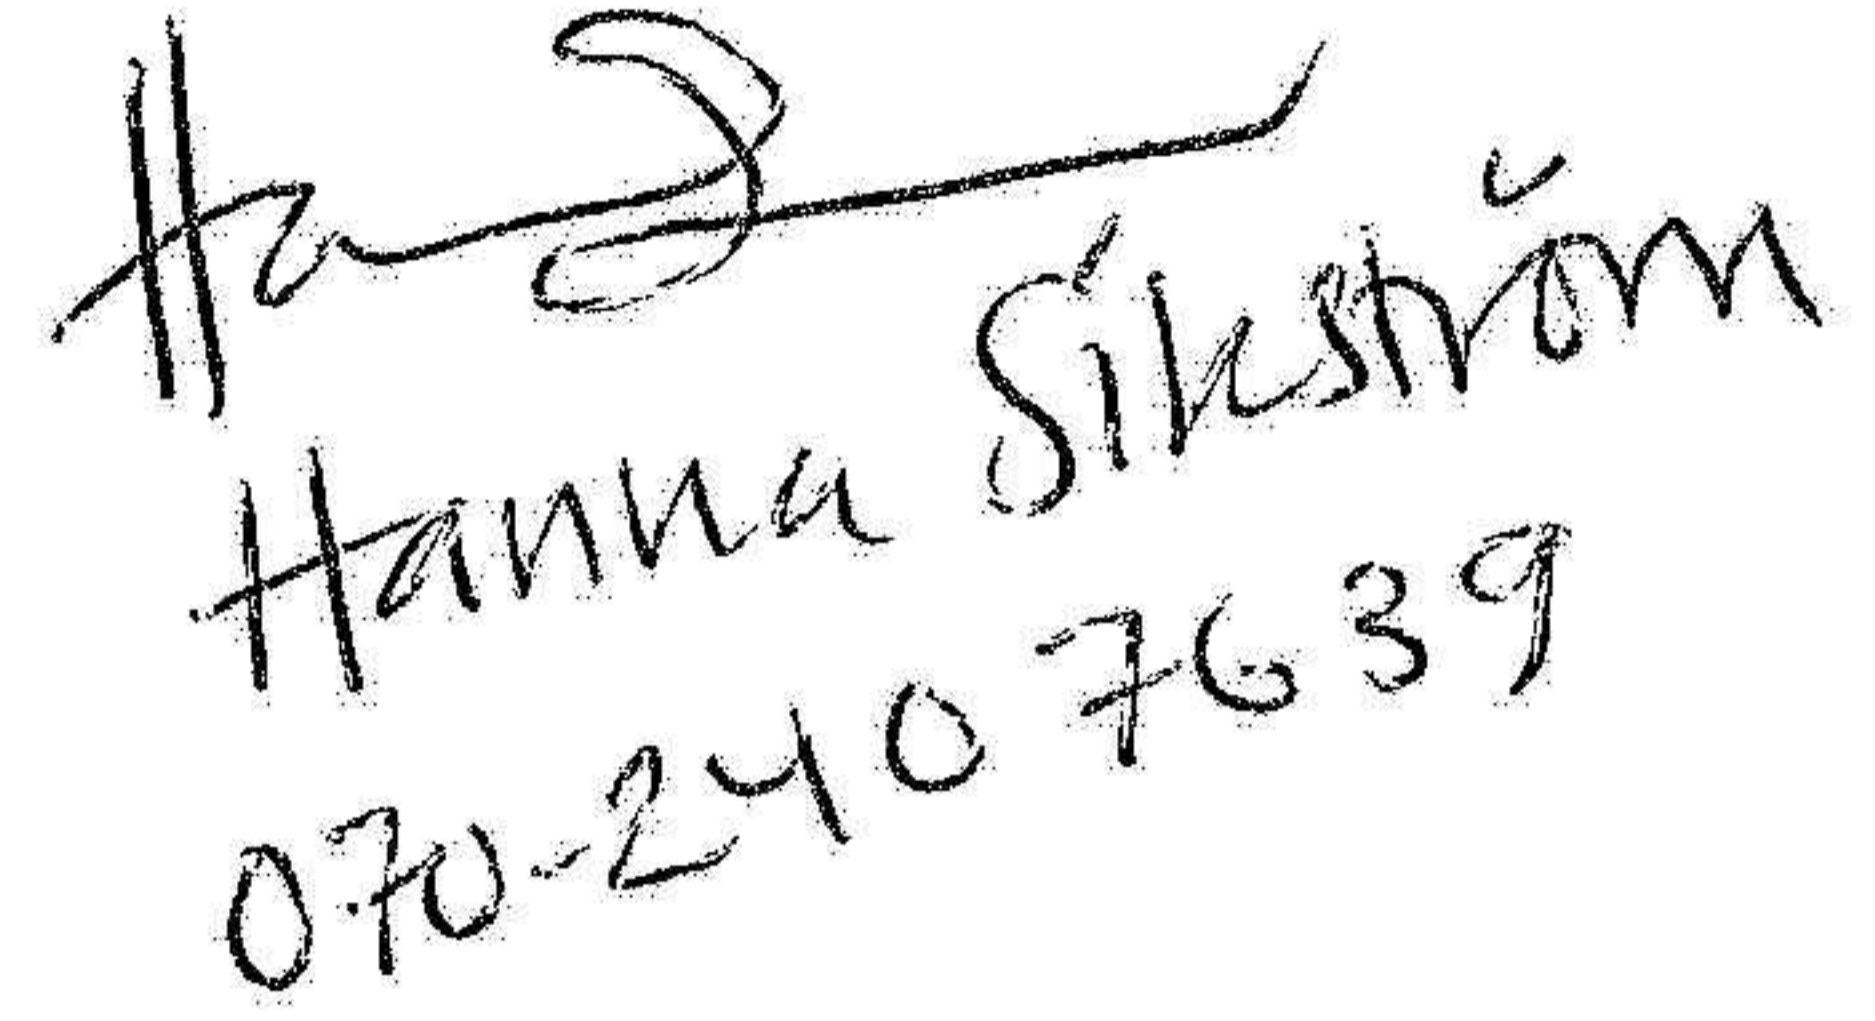 Hanna Sikström
070-240 7639